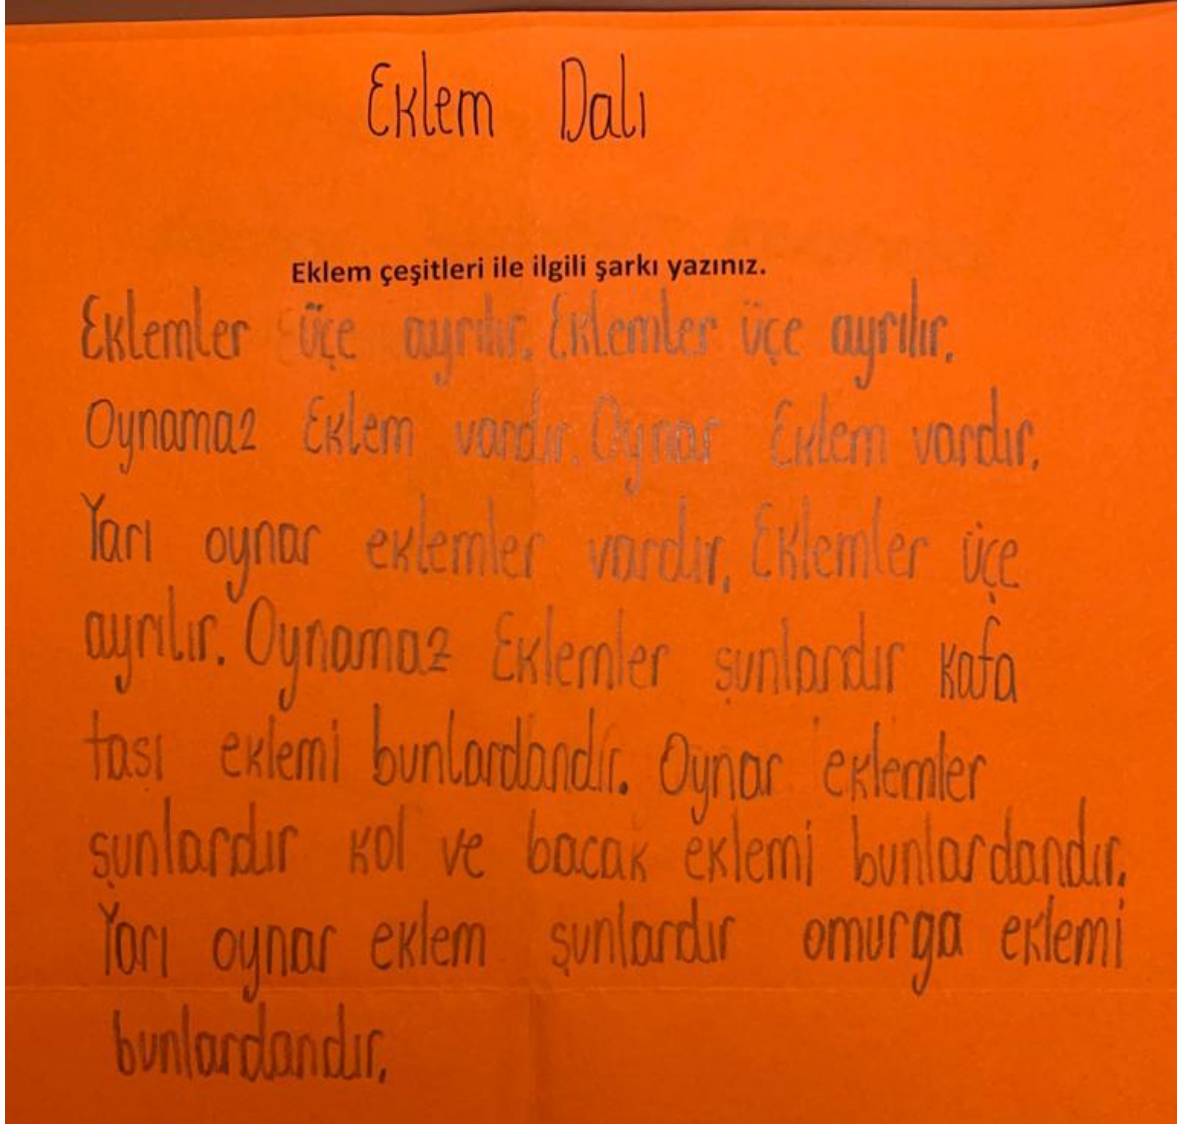 Eklem Dalı
Eklem çeşitleri ile ilgili şarkı yazınız.
Eklemler üçe ayrılır. Eklemler üçe ayrılır.
Oynamaz Eklem vardır. Oynar Eklem vardır.
Yarı oynar eklemler vardır. Eklemler üçe
ayrılır. Oynamaz Eklemler şunlardır kafa
tası eklemi bunlardandır. Oynar eklemler
şunlardır kol ve bacak eklemi bunlardandır.
Yarı oynar eklem şunlardır omurga eklemi
bunlardandır.